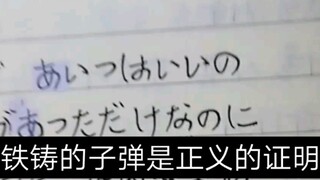 あいつはいいの
があっただけなのに
铁铸的子弹是正义的证明